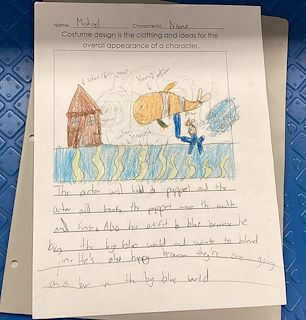 Name: Michael Character(s): Nemo
Costume design is the clothing and ideas for the
overall appearance of a character.
The actor will hold a puppet and the
actor will make the puppet move the mouth
and fins. Also his outfit is blue because he
the big blue world and wants to blend
in. He's also because they're are going
on a in the big blue world